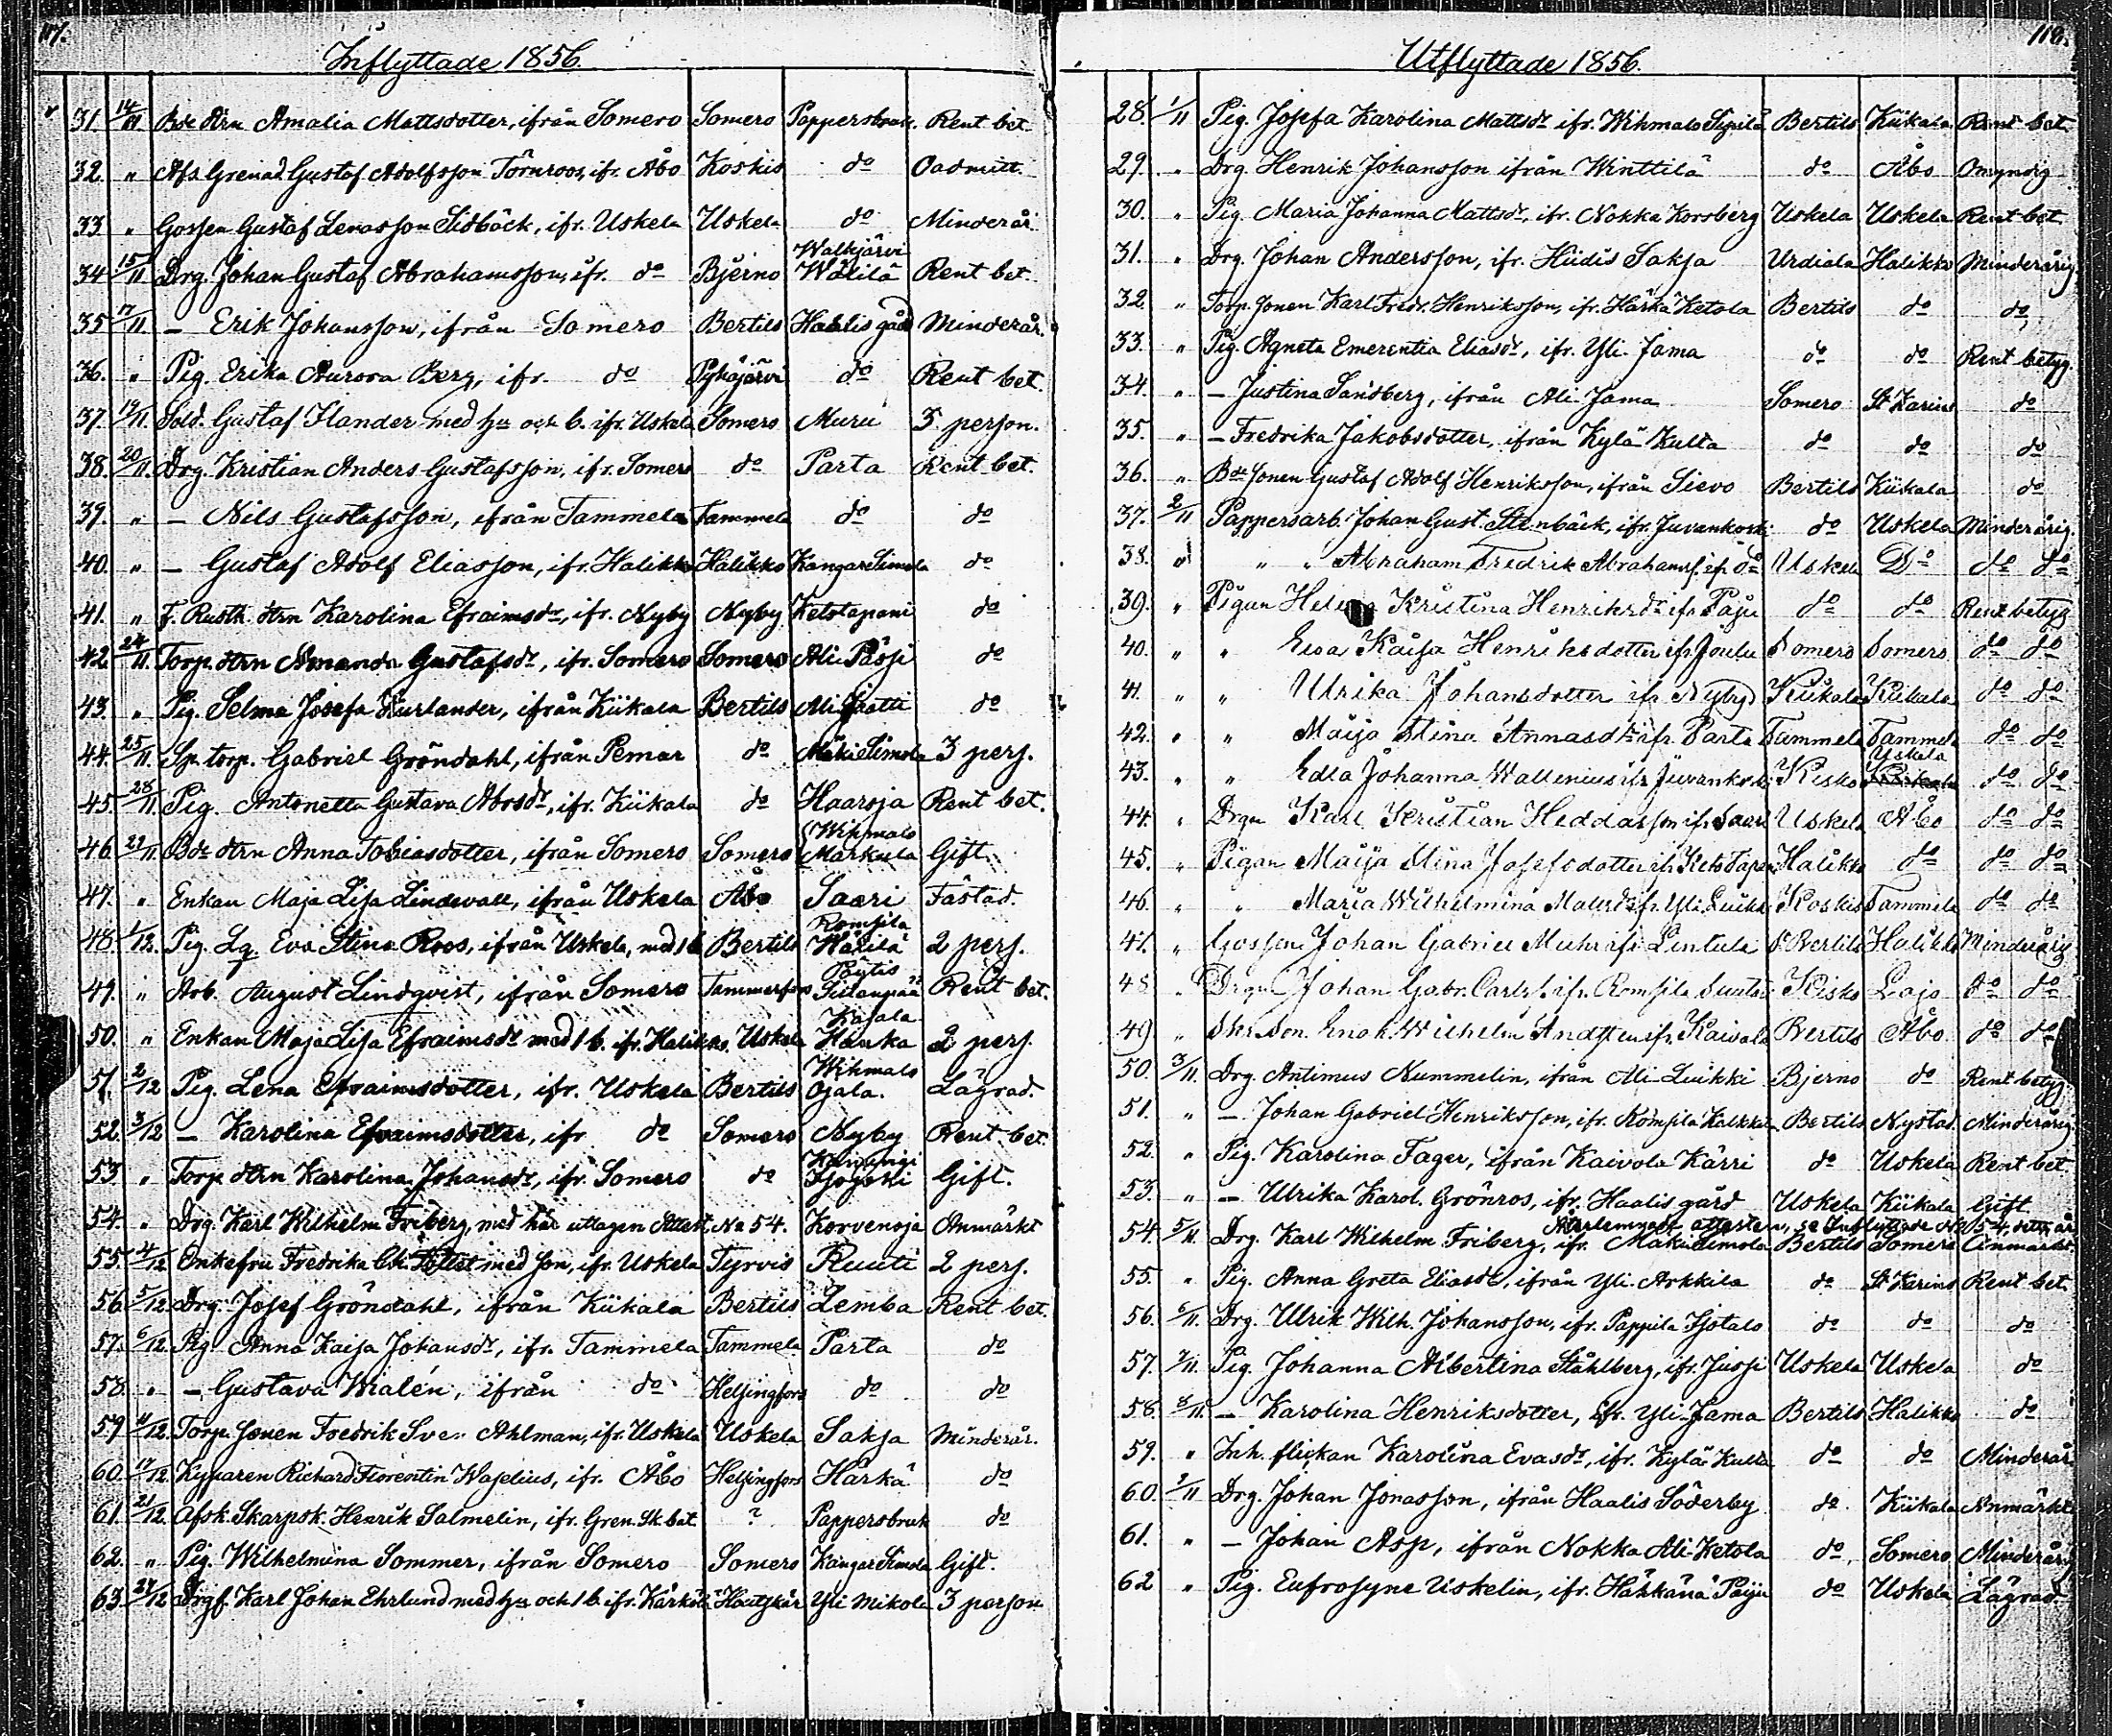 117.
Inflyttade 1856.
31. 14/11 Bde dtrn Amalia Mattsdotter, ifrån Somero Somero Pappersbruk. Rent bet.
32. " Afs. Grenad. Gustaf Adolfsson Törnroos, ifr. Åbo Koskis do Oadmitt.
33 " Gossen Gustaf Lenasson Lidbäck, ifr. Uskela Uskela do Minderår.
Walkjärvi
34 15/11 Drg. Johan Gustaf Abrahamsson, ifr. do Bjerno Wälilä Rent bet.
35 17/11 — Erik Johansson, ifrån Somero Bertils Haalis gård Minderår.
36. " Pig. Erika Aurora Berg, ifr. do Pyhäjärvi do Rent bet.
37. 19/11 Sold. Gustaf Ilander med hu och b. ifr. Uskela Somero Muru 3 person.
38. 20/11. Drg. Kristian Anders Gustafsson, ifr. Somero do Parta Rent bet.
39. " — Nils Gustafsson, ifrån Tammela Tammela do do
40. " — Gustaf Adolf Eliasson, ifr. Halikko Halikko Kangar Simola do
41. " F. Rusth. dtrn Karolina Efraimsdr, ifr. Nyby Nyby Ketotapani do
42. 24/11. Torp. dtrn Amanda Gustafsdr, ifr. Somero Somero Ali Pässi do
43. " Pig. Selma Josefa Kurlander, ifrån Kiikala Bertils Ali do
44. 25/11. Sp. torp. Gabriel Gröndahl, ifrån Pemar do Mäki Simola 3 pers.
45 28/11 Pig. Antonetta Gustava Abrsdr, ifr. Kiikala do Haaroja Rent bet.
Wihmalo
46. 29/11 Bde dtrn Anna Tobiasdotter, ifrån Somero Somero Markula Gift.
47. " Enkan Maja Lisa Lindevall, ifrån Uskela Åbo Saari Fästad.
Romsila
48. 1/12. Pig. Lg Eva Stina Roos, ifrån Uskela, med 1 b Bertils Wälilä 2 pers.
Pöytis
49. " Arb. August Lindqvist, ifrån Somero Tammerfors Rent bet.
Kajala
50. " Enkan Maja Lisa Efraimsdr med 1 b. ifr. Halikko. Uskela Hauka 2 pers.
Wihmalo
51. 2/12 Pig. Lena Efraimsdotter, ifr. Uskela Bertils Ojala. Lägrad.
52. 3/12 — Karolina Efraimsdotter, ifr do Somero Nyby Rent bet.
53 " Torp. dtrn Karolina Johansdr, ifr. Somero do Gift.
54. " Drg. Karl Wilhelm Friberg, med här uttagen Attest No 54. Korvenoja Anmärkt
55. 4/12 Enkefru Fredrika Ch. med son, ifr. Uskela Tyrvis Ruuti 2 pers.
56 5/12 Drg. Josef Gröndahl, ifrån Kiikala Bertils Lemba Rent bet.
57. 6/12. Pig. Anna Kaisa Johansdr, ifr. Tammela Tammela Parta do
58. " — Gustava Wialén, ifrån do Helsingfors do do
59 11/12. Torp. sonen Fredrik Ahlman, ifr. Uskela Uskela Saksa Minderår.
60. 17/12. Kyparen Richard Florentin Wajelius, ifr. Åbo Helsingfors Härkä do
61. 21/12. Afsk. Skarpsk. Henrik Salmelin, ifr. Gren. Sk. bat. ? Pappersbruk do
62. " Pig. Wilhelmina Sommer, ifrån Somero Somero Kangar Simola Gift.
63. 27/12 Drgf. Karl Johan Ehrlund med hu och 1 b. ifr. Kärkölä Houtskär Yli Mikola 3 person
118.
Utflyttade 1856.
28. 1/11 Pig. Josefa Karolina Mattsdr ifr. Wihmalo Sipilä Bertils Kiikala Rent bet.
29. " Drg Henrik Johansson ifrån Winttilä do Åbo Omyndig
30. " Pig. Maria Johanna Mattsdr, ifr. Nokka Korsberg Uskela Uskela Rent bet.
31. " Drg. Johan Andersson, ifr. Hiidis Saksa Urdiala Halikko Minderårig
32. " Torp. sonen Karl Fredr. Henriksson, ifr. Härkä Ketola Bertils do do,
33. " Pig. Agneta Emerentia Eliasdr, ifr. Yli-Jama do do Rent betyg.
34. " — Justina Sandberg, ifrån Ali-Jama Somero St. Karins do
35. " — Fredrika Jakobsdotter, ifrån Kylä-Kulta do do do
36. " Bde sonen Gustaf Adolf Henriksson, ifrån Sievo Bertils Kiikala do
37. 2/11 Pappersarb. Johan Gust. Stenbäck, ifr. Juvankoski do Uskela Minderårig.
38. " " " Abraham Fredrik Abrahams. ifr. do Uskela Do do do
39. " Pigan Helena Kristina Henriksdr ifr Paju do do Rent betyg
40. " " Eva Kaisa Henriksdotter ifr Joulu Somero Somero do do
41. " " Ulrika Johansdotter ifr Nyby Kiikala Kiikala do do
42. " " Maija Stina Annasdr ifr. Parta Tammela Tammela do do
Uskela
43. " " Edla Johanna Wallenius ifr Juvankoski Kisko do do
44. " Drgn Karl Kristian Heddasson ifr Saari Uskela Åbo do do
45. " Pigan Maija Stina Josefsdotter ifr Keto Tapani Halikko do do do
46. " " Maria Wilhelmina Mattsdr ifr. Yli Luikki Koskis Tammela do do
47. " Gossen Johan Gabriel Muhr ifr Lintula St Bertils Halikko Minderårig
48. " Drgn Johan Gabr. Carls. ifr. Romsila Kisko Lojo do do
49. " Skr. son. Enok Wilhelm ifr. Kaivola Bertils Åbo. do do
50. 3/11. Drg. Antimus Nummelin, ifrån Ali-Luikki Bjerno do Rent betyg.
51. " — Johan Gabriel Henriksson, ifr. Romsila Kalkkila Bertils Nystad. Minderårig
52. " Pig. Karolina Fager, ifrån Kaivola Kärri do Uskela Rent bet.
53. " — Ulrika Karol. Grönros, ifr. Haalis gård Uskela Kiikala Gift.
Återlemnat attesten, se Inflyttade No 54, detta år
54. 5/11. Drg. Karl Wilhelm Friberg, ifr. Mäki Simola Bertils Somero Anmärkt.
55. " Pig. Anna Greta Eliasdr, ifrån Yli-Arkkila do St Karins Rent bet.
56. 6/11. Drg. Ulrik Wilh. Johansson, ifr. Pappila Isotalo do do do
57. 7/11. Pig. Johanna Albertina Ståhlberg, ifr. Jussi Uskela Uskela do
58. 8/11. — Karolina Henriksdotter, ifr. Yli-Jama Bertils Halikko do
59. " Inh. flickan Karolina Evasdr, ifr. Kylä-Kulta do do Minderår.
60. 9/11 Drg. Johan Jonasson, ifrån Haalis Söderby do Kiikala Anmärkt
61. " — Johan Asp, ifrån Nokka Ali-Ketola do, Somero, Minderårig
62 " Pig. Eufrosyne Uskelin, ifr. Härkänä Paiju do Uskela Lägrad.